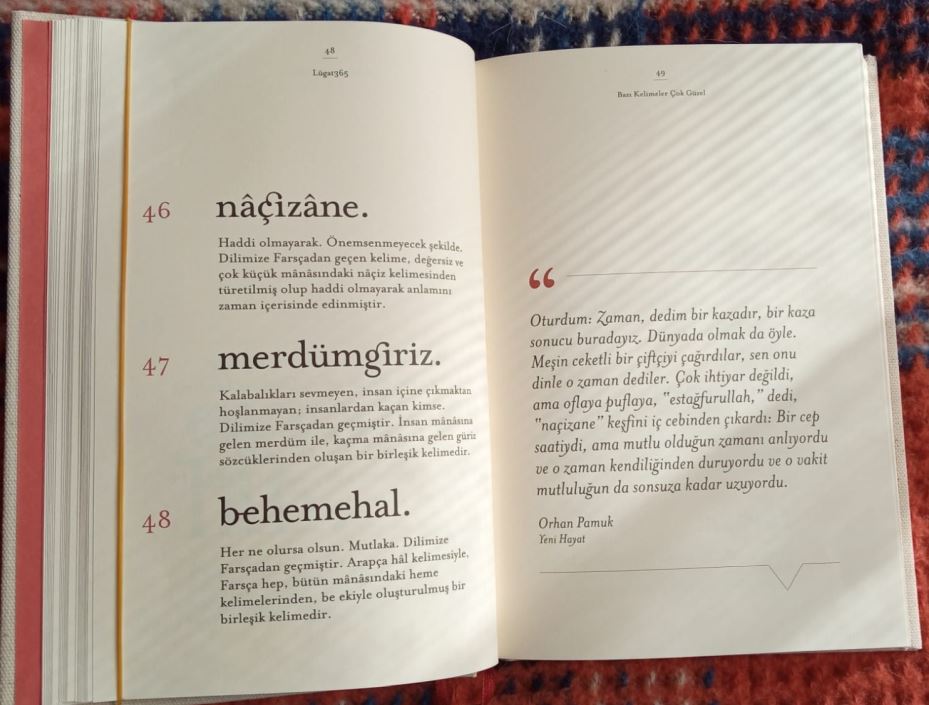 48
Lûgat365
46
nâçizâne.
Haddi olmayarak. Önemsenmeyecek şekilde.
Dilimize Farsçadan geçen kelime, değersiz ve
çok küçük mânâsındaki nâçiz kelimesinden
türetilmiş olup haddi olmayarak anlamını
zaman içerisinde edinmiştir.
47
merdümgiriz.
Kalabalıkları sevmeyen, insan içine çıkmaktan
hoşlanmayan; insanlardan kaçan kimse.
Dilimize Farsçadan geçmiştir. İnsan mânâsına
gelen merdüm ile, kaçma mânâsına gelen güriz
sözcüklerinden oluşan bir birleşik kelimedir.
48
behemehal.
Her ne olursa olsun. Mutlaka. Dilimize
Farsçadan geçmiştir. Arapça hâl kelimesiyle,
Farsça hep, bütün mânâsındaki heme
kelimelerinden, be ekiyle oluşturulmuş bir
birleşik kelimedir.
49
Bazı Kelimeler Çok Güzel
“
Oturdum: Zaman, dedim bir kazadır, bir kaza
sonucu buradayız. Dünyada olmak da öyle.
Meşin ceketli bir çiftçiyi çağırdılar, sen onu
dinle o zaman dediler. Çok ihtiyar değildi,
ama oflaya puflaya, "estağfurullah," dedi,
"naçizane" keşfini iç cebinden çıkardı: Bir cep
saatiydi, ama mutlu olduğun zamanı anlıyordu
ve o zaman kendiliğinden duruyordu ve o vakit
mutluluğun da sonsuza kadar uzuyordu.
Orhan Pamuk
Yeni Hayat